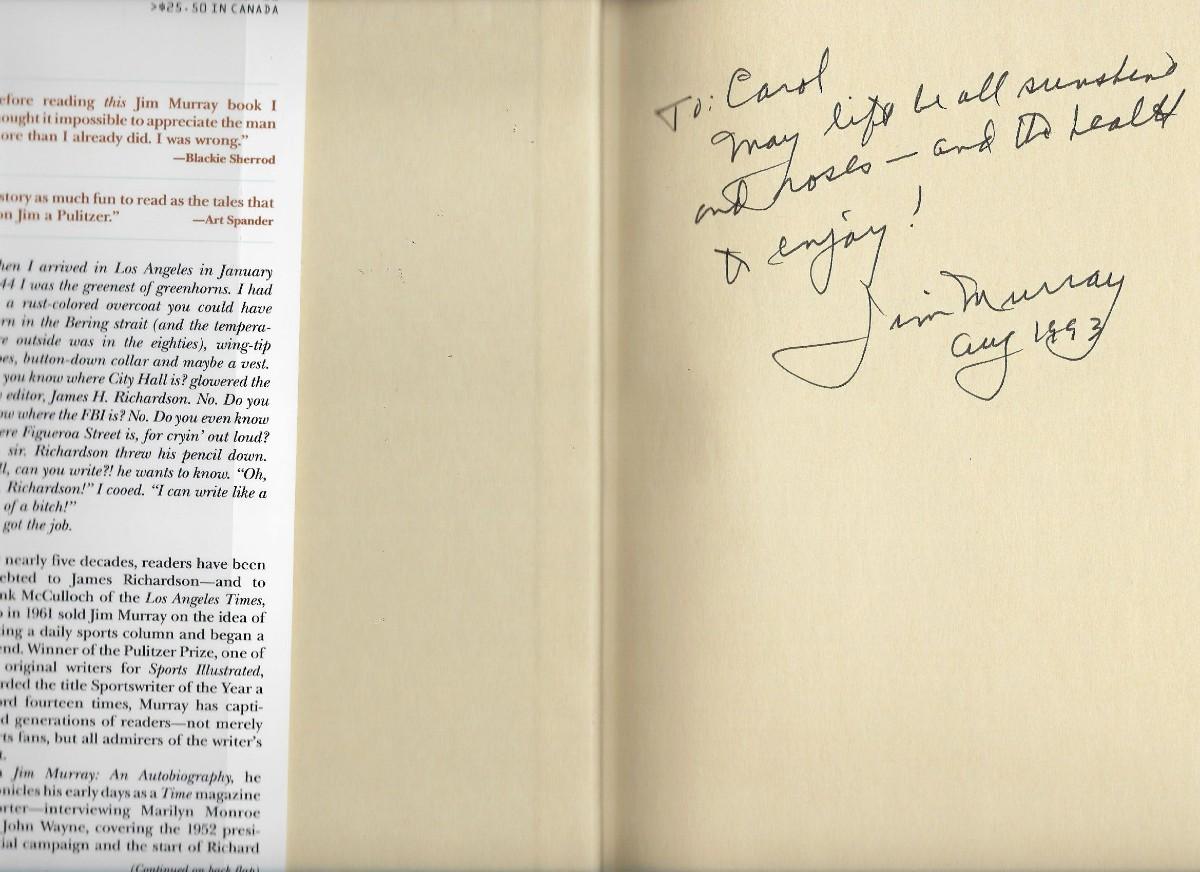 >$25.50 IN CANADA
efore reading this Jim Murray book I
ought it impossible to appreciate the man
ore than I already did. I was wrong.”
—Blackie Sherrod
story as much fun to read as the tales that
on Jim a Pulitzer.” —Art Spander
hen I arrived in Los Angeles in January
44 I was the greenest of greenhorns. I had
a rust-colored overcoat you could have
rn in the Bering strait (and the tempera-
e outside was in the eighties), wing-tip
oes, button-down collar and maybe a vest.
you know where City Hall is? glowered the
editor, James H. Richardson. No. Do you
ow where the FBI is? No. Do you even know
ere Figueroa Street is, for cryin’ out loud?
sir. Richardson threw his pencil down.
ll, can you write?! he wants to know. “Oh,
Richardson!” I cooed. “I can write like a
of a bitch!”
got the job.
nearly five decades, readers have been
ebted to James Richardson—and to
nk McCulloch of the Los Angeles Times,
o in 1961 sold Jim Murray on the idea of
ing a daily sports column and began a
end. Winner of the Pulitzer Prize, one of
original writers for Sports Illustrated,
rded the title Sportswriter of the Year a
ord fourteen times, Murray has capti-
d generations of readers—not merely
rts fans, but all admirers of the writer’s
t.
Jim Murray: An Autobiography, he
onicles his early days as a Time magazine
orter—interviewing Marilyn Monroe
John Wayne, covering the 1952 presi-
ial campaign and the start of Richard
(Continued on back flap)
To: Carol
May life be all sunshine
and roses — and the health
to enjoy!
Jim Murray
Aug 1993